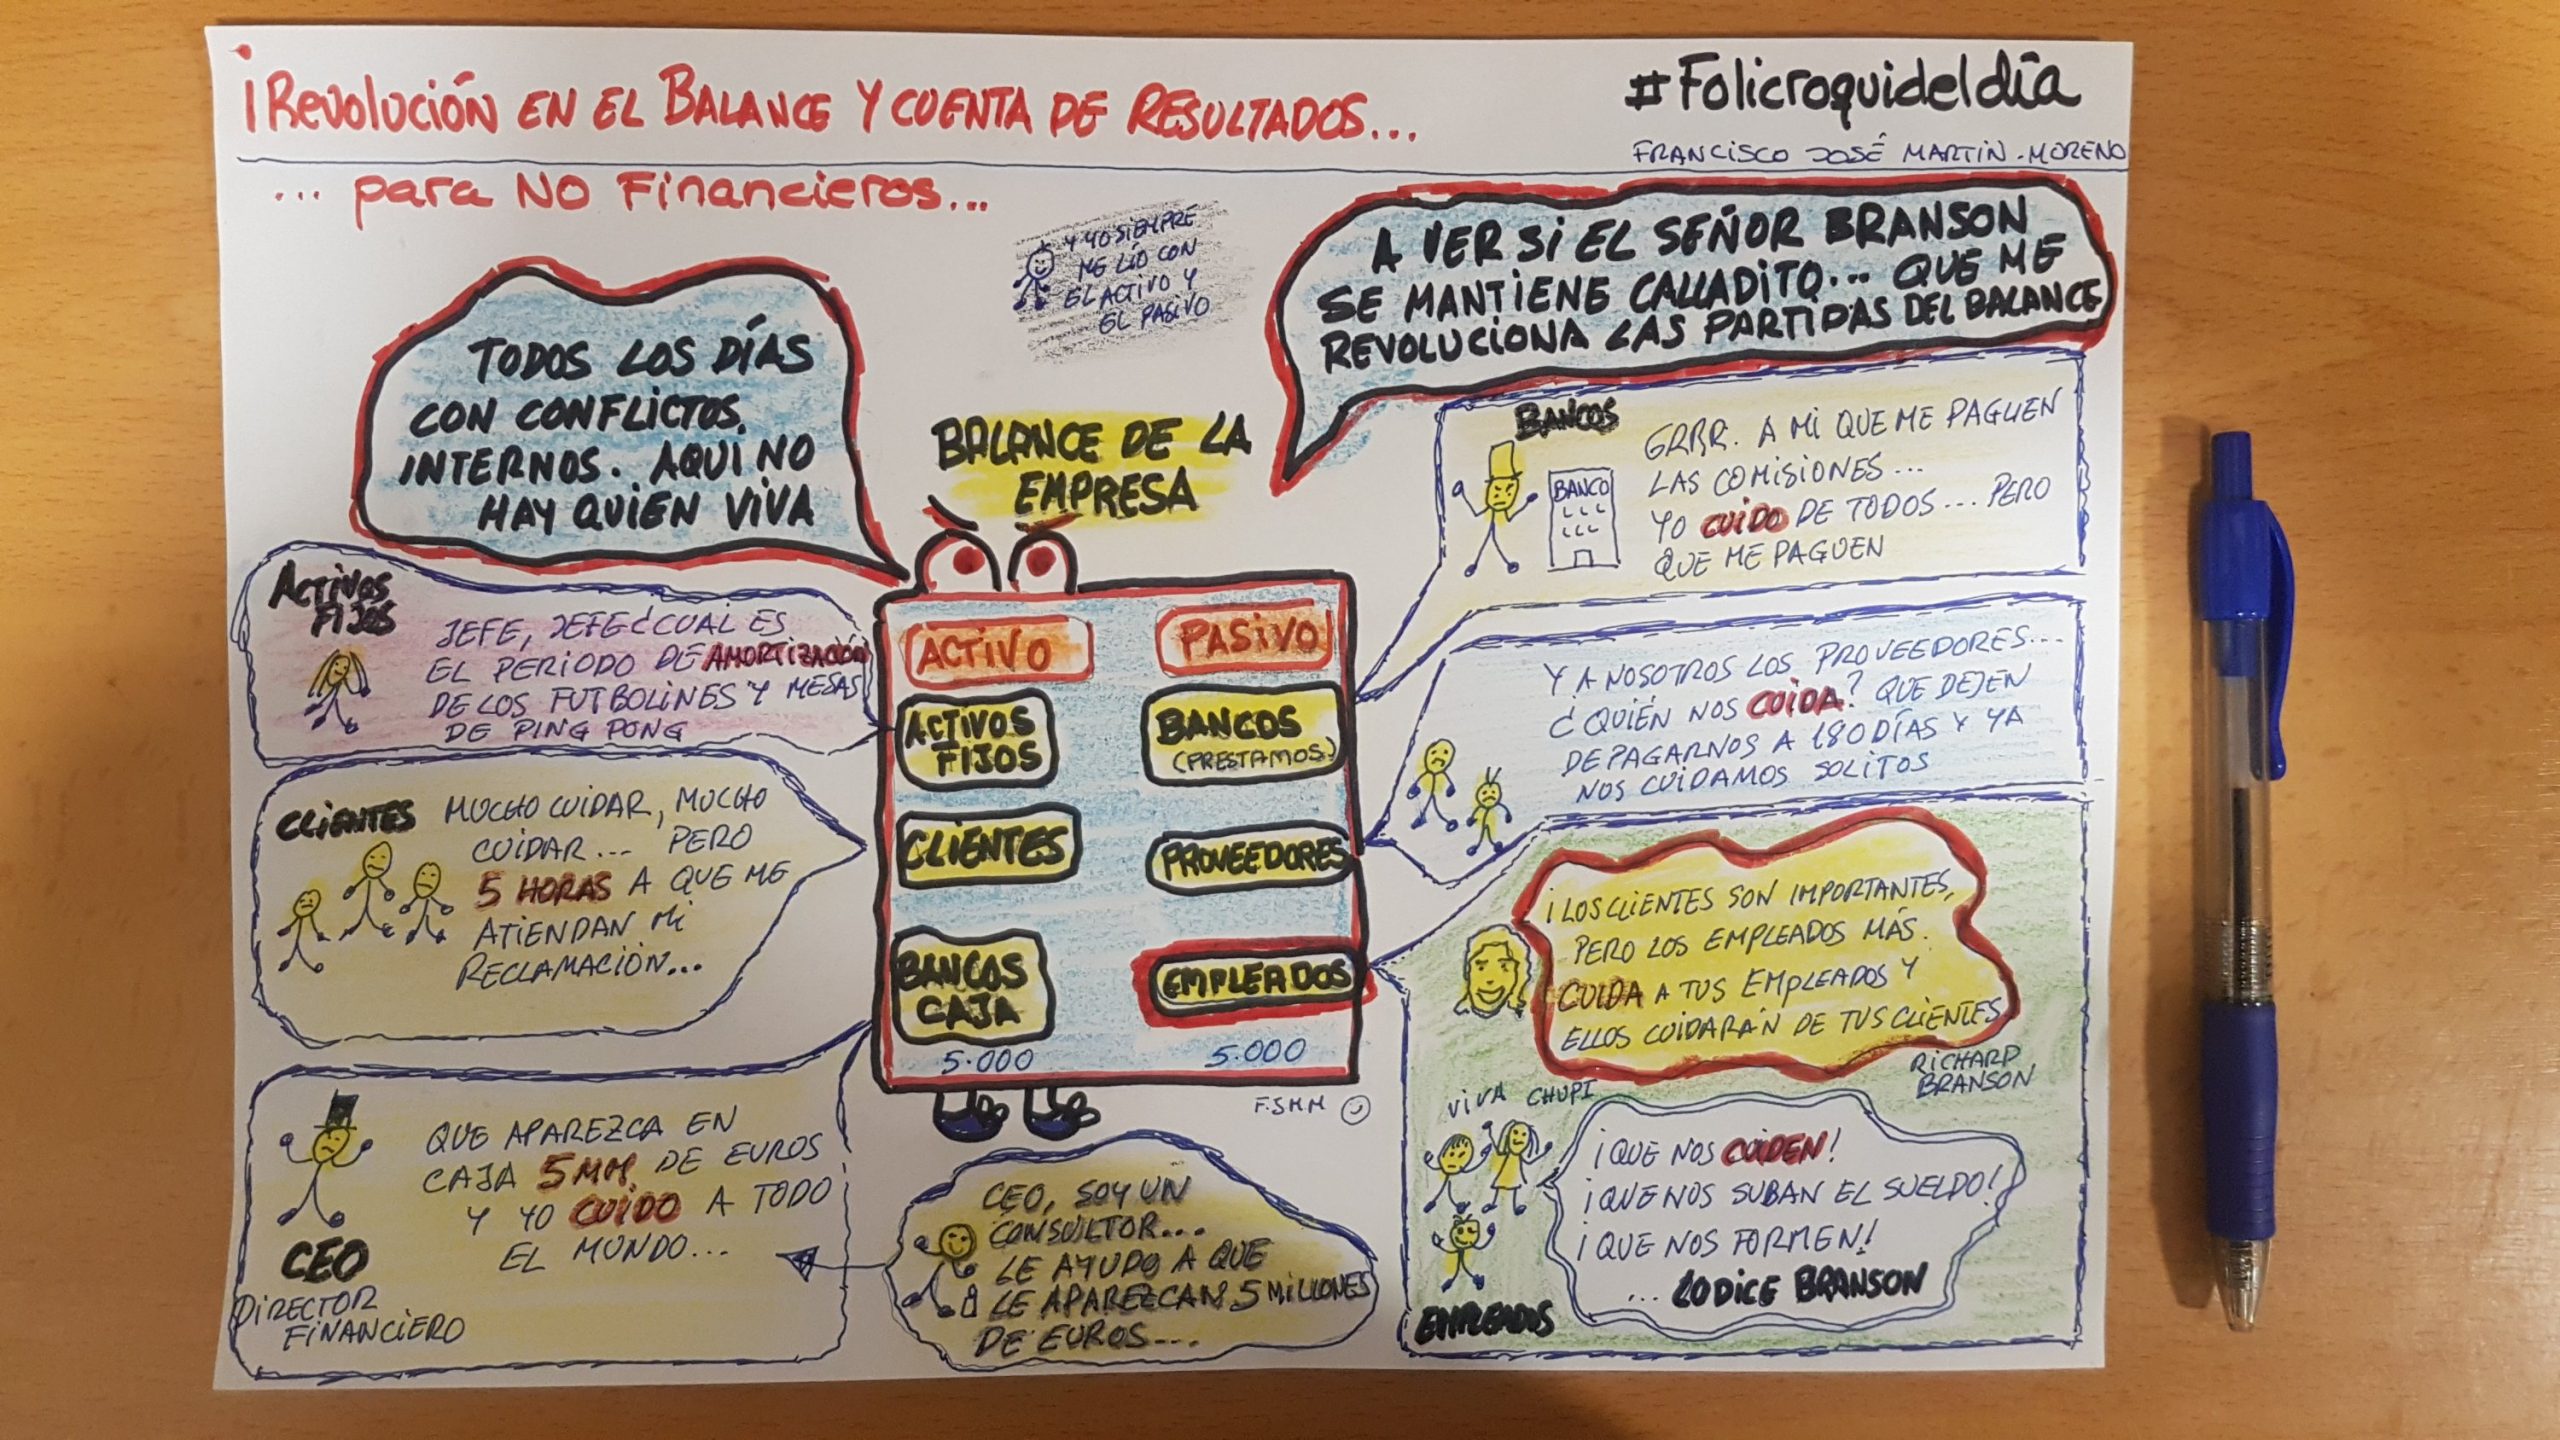 ¡Revolución en el Balance y cuenta de Resultados...
#Folicroquideldía
Francisco José Martín-Moreno
... para NO Financieros...
Y yo siempre
me lío con
el activo y
el pasivo
A ver si el señor Branson
se mantiene calladito... que me
revoluciona las partidas del balance
Todos los días
con conflictos
internos. Aquí no
hay quien viva
Balance de la
empresa
Activos
Fijos
Jefe, jefe ¿cual es
el periodo de amortización
de los futbolines y mesas
de ping pong
Clientes
Mucho cuidar, mucho
cuidar... pero
5 horas a que me
atiendan mi
reclamación...
Que aparezca en
caja 5 MM. de euros
y yo cuido a todo
el mundo...
CEO
Director
Financiero
Activo
Activos
Fijos
Clientes
Bancos
Caja
5.000
Pasivo
Bancos
(prestamos)
Proveedores
Empleados
5.000
F.SMM
CEO, soy un
consultor...
le ayudo a que
le aparezcan 5 millones
de euros...
Bancos
Banco
Grrr. A mi que me paguen
las comisiones...
yo cuido de todos... pero
que me paguen
Y a nosotros los proveedores...
¿quién nos cuida? Que dejen
de pagarnos a 180 días y ya
nos cuidamos solitos
¡Los clientes son importantes,
pero los empleados más.
Cuida a tus empleados y
ellos cuidarán de tus clientes
Richard
Branson
Viva Chupi
¡Que nos cuiden!
¡Que nos suban el sueldo!
¡Que nos formen!
... lo dice Branson
Empleados